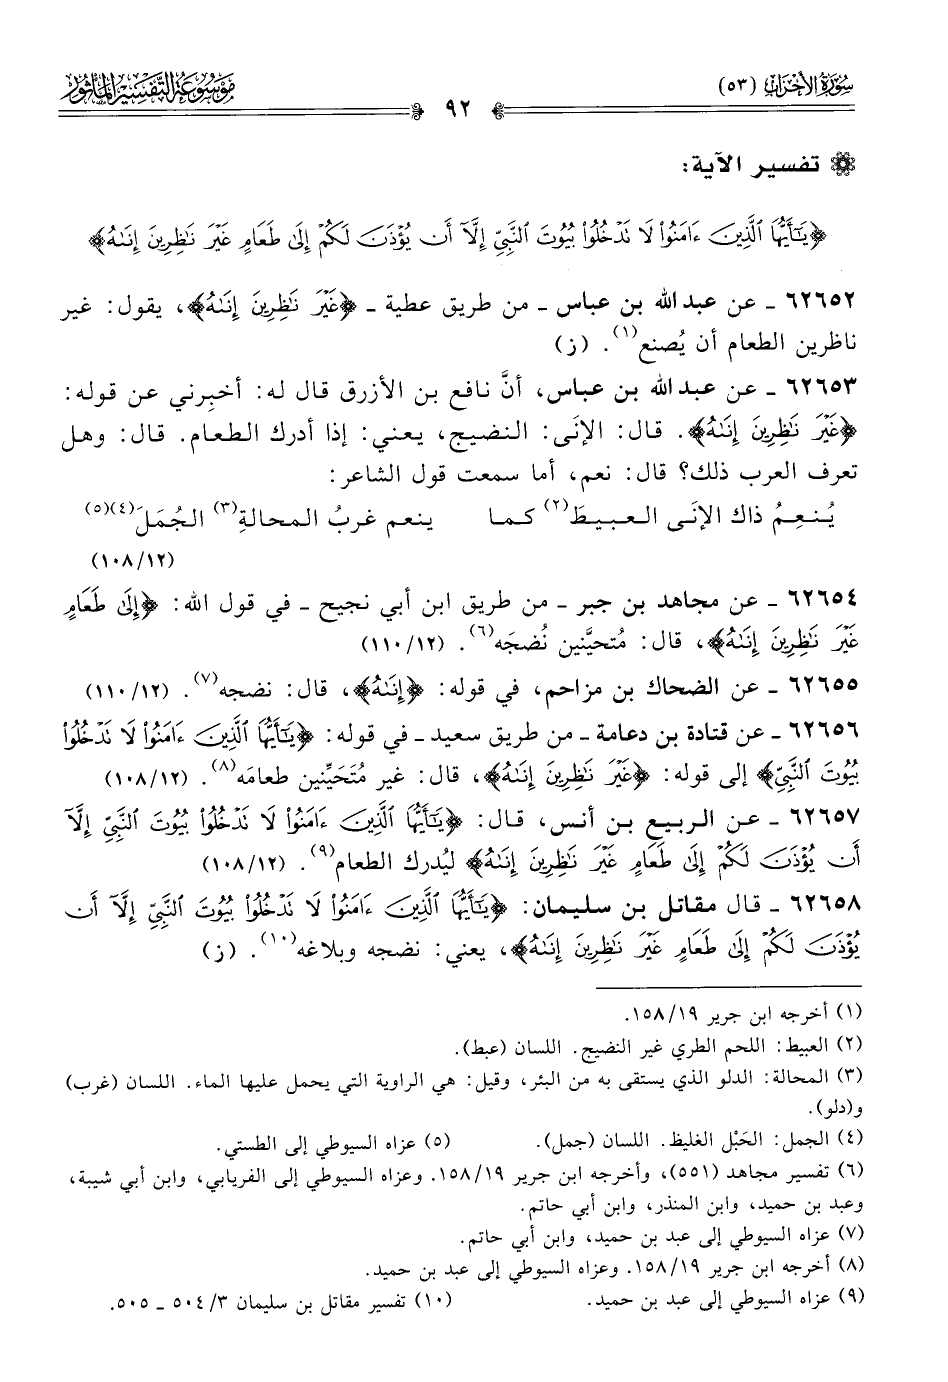 سُورَةُ الأَحْزَابِ (٥٣)
٩٢
مَوْسُوعَةُ التَّفْسِيرِ المَأْثُورِ
تفسير الآية:
﴿يَٰٓأَيُّهَا ٱلَّذِينَ ءَامَنُوا۟ لَا تَدْخُلُوا۟ بُيُوتَ ٱلنَّبِىِّ إِلَّآ أَن يُؤْذَنَ لَكُمْ إِلَىٰ طَعَامٍ غَيْرَ نَٰظِرِينَ إِنَىٰهُ﴾
٦٢٦٥٢ ـ عن عبد الله بن عباس ـ من طريق عطية ـ ﴿غَيْرَ نَٰظِرِينَ إِنَىٰهُ﴾، يقول: غير
ناظرين الطعام أن يُصنع(١). (ز)
٦٢٦٥٣ ـ عن عبد الله بن عباس، أنَّ نافع بن الأزرق قال له: أخبِرني عن قوله:
﴿غَيْرَ نَٰظِرِينَ إِنَىٰهُ﴾. قال: الإنَى: النضيج، يعني: إذا أدرك الطعام. قال: وهل
تعرف العرب ذلك؟ قال: نعم، أما سمعت قول الشاعر:
يُنعِمُ ذاك الإنَى العبيطَ(٢) كما ينعم غربُ المحالةِ(٣) الجُمَلَ(٤)(٥)
(١٠٨/١٢)
٦٢٦٥٤ ـ عن مجاهد بن جبر ـ من طريق ابن أبي نجيح ـ في قول الله: ﴿إِلَىٰ طَعَامٍ
غَيْرَ نَٰظِرِينَ إِنَىٰهُ﴾، قال: مُتحيَّنين نُضجَه(٦). (١١٠/١٢)
٦٢٦٥٥ ـ عن الضحاك بن مزاحم، في قوله: ﴿إِنَىٰهُ﴾، قال: نضجه(٧). (١١٠/١٢)
٦٢٦٥٦ ـ عن قتادة بن دعامة ـ من طريق سعيد ـ في قوله: ﴿يَٰٓأَيُّهَا ٱلَّذِينَ ءَامَنُوا۟ لَا تَدْخُلُوا۟
بُيُوتَ ٱلنَّبِىِّ﴾ إلى قوله: ﴿غَيْرَ نَٰظِرِينَ إِنَىٰهُ﴾، قال: غير مُتَحَيِّنين طعامَه(٨). (١٠٨/١٢)
٦٢٦٥٧ ـ عن الربيع بن أنس، قال: ﴿يَٰٓأَيُّهَا ٱلَّذِينَ ءَامَنُوا۟ لَا تَدْخُلُوا۟ بُيُوتَ ٱلنَّبِىِّ إِلَّآ
أَن يُؤْذَنَ لَكُمْ إِلَىٰ طَعَامٍ غَيْرَ نَٰظِرِينَ إِنَىٰهُ﴾ ليُدرك الطعام(٩). (١٠٨/١٢)
٦٢٦٥٨ ـ قال مقاتل بن سليمان: ﴿يَٰٓأَيُّهَا ٱلَّذِينَ ءَامَنُوا۟ لَا تَدْخُلُوا۟ بُيُوتَ ٱلنَّبِىِّ إِلَّآ أَن
يُؤْذَنَ لَكُمْ إِلَىٰ طَعَامٍ غَيْرَ نَٰظِرِينَ إِنَىٰهُ﴾، يعني: نضجه وبلاغه(١٠). (ز)
(١) أخرجه ابن جرير ١٥٨/١٩.
(٢) العبيط: اللحم الطري غير النضيج. اللسان (عبط).
(٣) المحالة: الدلو الذي يستقى به من البئر، وقيل: هي الراوية التي يحمل عليها الماء. اللسان (غرب)
و(دلو).
(٤) الجمل: الحَبْل الغليظ. اللسان (جمل). (٥) عزاه السيوطي إلى الطستي.
(٦) تفسير مجاهد (٥٥١)، وأخرجه ابن جرير ١٥٨/١٩. وعزاه السيوطي إلى الفريابي، وابن أبي شيبة،
وعبد بن حميد، وابن المنذر، وابن أبي حاتم.
(٧) عزاه السيوطي إلى عبد بن حميد، وابن أبي حاتم.
(٨) أخرجه ابن جرير ١٥٨/١٩. وعزاه السيوطي إلى عبد بن حميد.
(٩) عزاه السيوطي إلى عبد بن حميد. (١٠) تفسير مقاتل بن سليمان ٥٠٤/٣ ـ ٥٠٥.